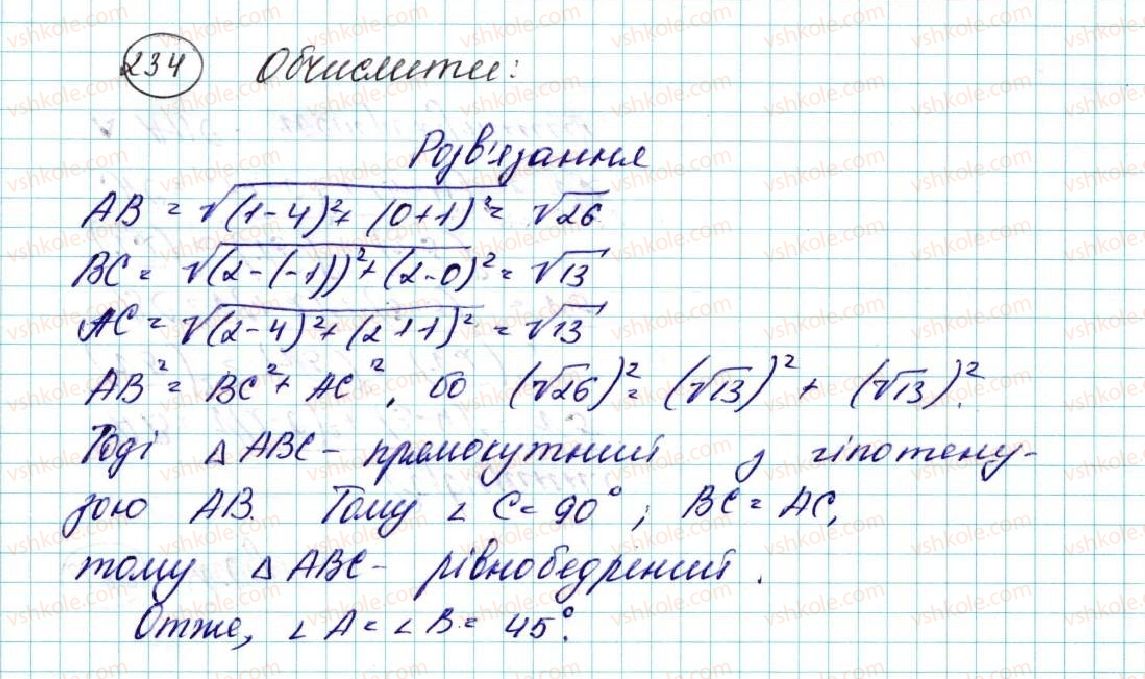 234 Обчислити:
Розв'язання
AB = √(1-4)²+(0+1)² = √26
BC = √(2-(-1))²+(2-0)² = √13
AC = √(2-4)²+(2+1)² = √13
AB² = BC² + AC², бо (√26)² = (√13)² + (√13)².
Тоді △ABC - прямокутний з гіпотену-
зою AB. Тому ∠C = 90°; BC = AC,
тому △ABC - рівнобедрений.
Отже, ∠A = ∠B = 45°.
vshkole.com